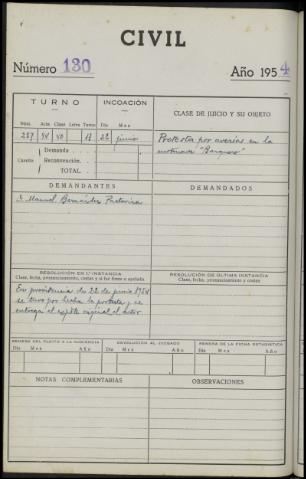 CIVIL
Número 130 Año 1954
TURNO INCOACIÓN CLASE DE JUICIO Y SU OBJETO
Núm. Acta Clase Letra Tomo Día Mes
287 54 40 17 22 junio Protesta por averías en la
motonave
Demanda
Cuantía Reconvención
TOTAL
DEMANDANTES DEMANDADOS
D. Manuel Bermúdez
RESOLUCIÓN EN 1.ª INSTANCIA RESOLUCIÓN DE ÚLTIMA INSTANCIA
Clase, fecha, pronunciamiento, costas y si fue firme o apelada. Clase, fecha, pronunciamiento y costas
En providencia de 22 de junio 1954
se tuvo por hecha la protesta y se
entrega el expte original al actor
REMESA DEL PLEITO A LA AUDIENCIA DEVOLUCIÓN AL JUZGADO REMESA DE LA FICHA ESTADÍSTICA
Día Mes Año Día Mes Año Día Mes Año
NOTAS COMPLEMENTARIAS OBSERVACIONES